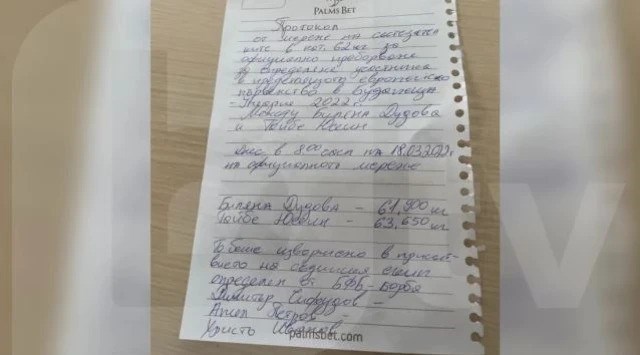 PALMS BET
Протокол
от мерене на състезател
ките в кат. 62 кг за
официално преборване
за определяне участничка
в предстоящото европейско
първенство в Будапеща
- Унгария 2022 г.
Между Биляна Дудова
и Тайбе Юсеин
днес в 8 00 часа на 18.03.2022 г
на официалното мерене
Биляна Дудова - 61,900 кг
Тайбе Юсеин - 63,650 кг
То беше извършено в присъс
твието на съдийския екип
определен от БФБ - борба
Димитър
Ангел Петров -
Христо
palmsbet.com
tv